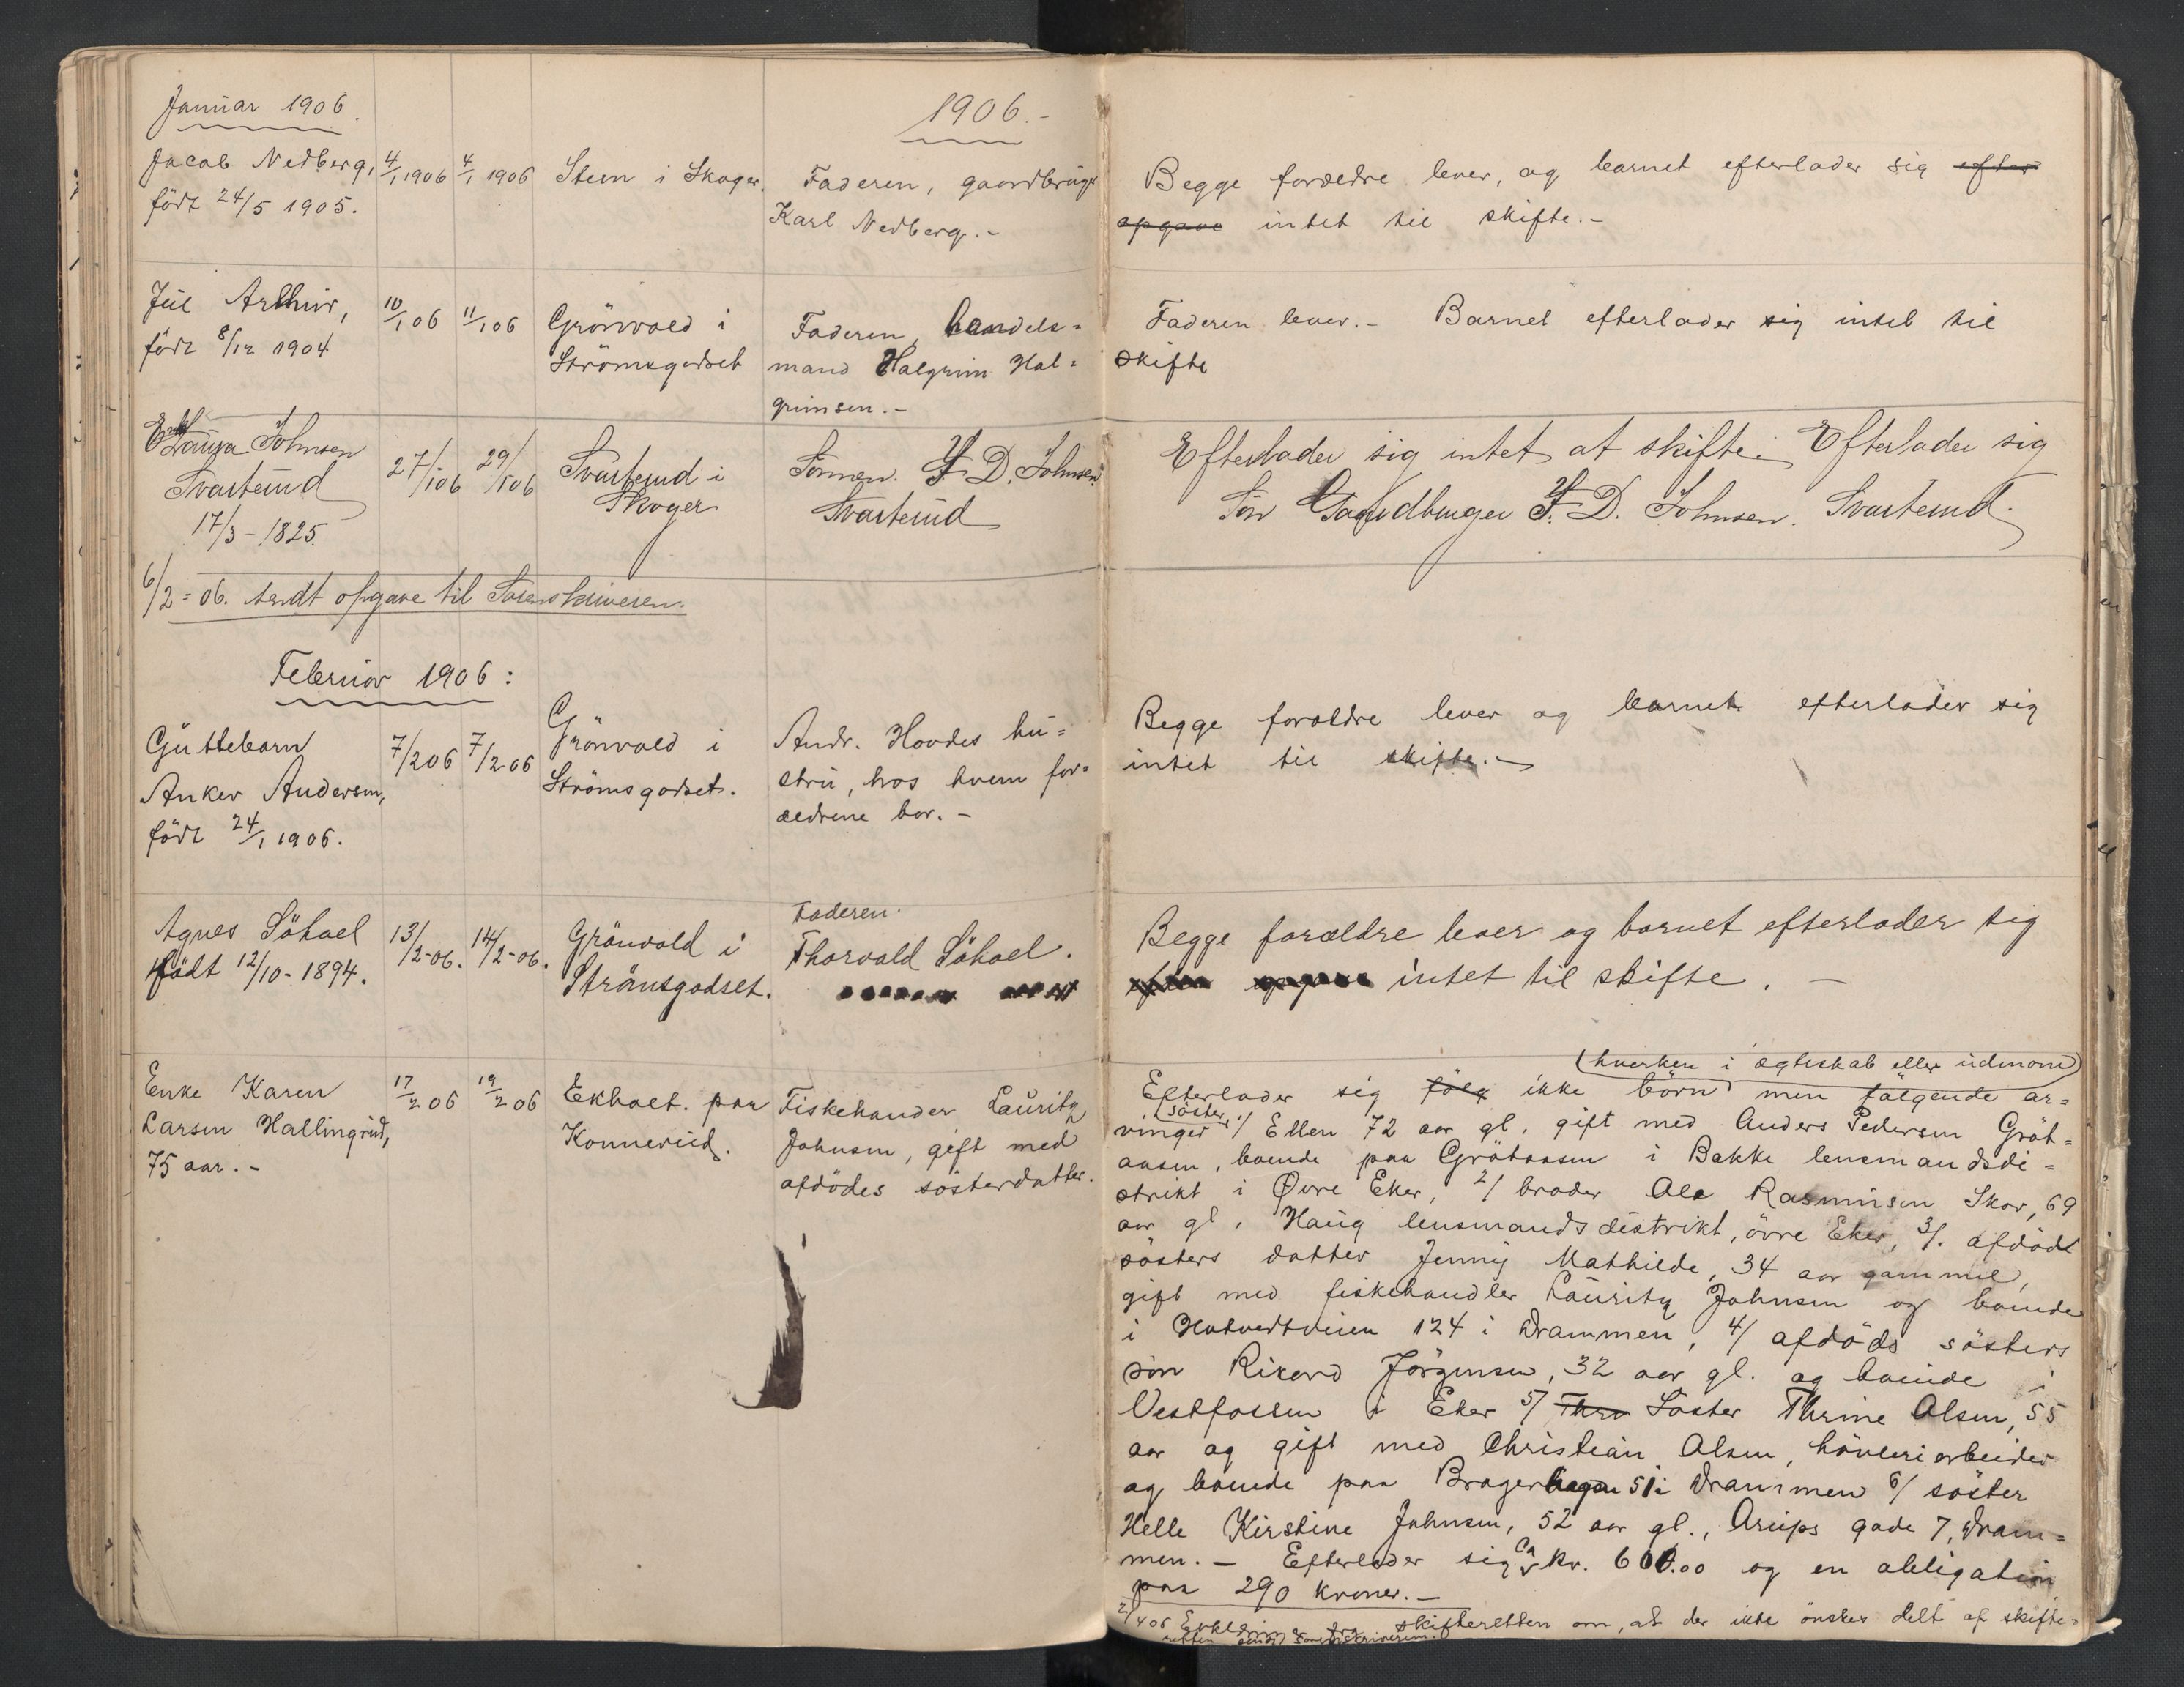 Januar 1906.
1906.-
Jacob Nedberg, 4/1 1906 4/1 1906 Steen i Skoger. Faderen, gaardbruger
født 24/5 1905.
Karl Nedberg.-
Begge forældre lever, og barnet efterlader sig efter
opgave intet til skifte.-
Juel Arthur, 10/1 06 11/1 06 Grönvold i Faderen, handels=
født 8/12 1904 Strömsgodset mand Halgrim Hal=
grimsen.-
Faderen lever.- Barnet efterlader sig intet til
skifte
Enke Laura Johnsen 27/1 06 29/1 06 Svarterud i Sönnen. D. Johnsen
Svarterud Skoger Svarterud
17/3-1825.
Efterlader sig intet at skifte. Efterlader sig
Sön Gaardbruger D. Johnsen. Svarterud.
6/2=06. sendt opgave til Sorenskriveren.
Februar 1906:
Guttebarn 7/2 06 7/2 06 Grönvold i Andr. Hovdes hu=
Anker Andersen, Strömsgodset. stru, hos hvem for=
født 24/1 1906. ældrene bor.-
Begge foraldre lever og barnet efterlader sig
intet til skifte.-
Faderen.
Agnes Söhoel 13/2-06. 14/2-06. Grönvold i Thorvald Söhoel.
født 12/10-1894. Strömsgodset.
Begge forældre lever og barnet efterlader sig
intet til skifte. -
Enke Karen 17/2 06 19/2 06 Ekholt. paa Fiskehander Lauritz
Larsen Hallingrud, Konnerud. Johnsen, gift med
75 aar.- afdödes sösterdatter.
(hverken i ægteskab eller udenom)
Efterlader sig fölg ikke börn men fölgende ar=
söster
vinger 1/ Ellen 72 aar gl. gift med Anders Pedersen Gröt=
aasen, boende paa Grötaasen i Bakke lensmandsdi=
strikt i Øvre Eker, 2/ broder Ole Rasmusen Skor, 69
aar gl, Haug lensmandsdistrikt, övre Eker, 3/. afdöde
sösters datter Jenny Mathilde, 34 aar gammel,
gift med fiskehandler Lauritz Johnsen og boende
i Hotvedtveien 124 i Drammen, 4/ afdöds sösters
sön Rikard Jörgensen, 32 aar gl. og boende i
Vestfossen i Eker 5/ Thri Söster Thrine Olsen, 55
aar og gift med Christian Olsen, hövleriarbeider
og boende paa Bragerhagen 51 i Drammen 6/ söster
Helle Kirstine Johnsen, 52 aar gl., Arups gade 7, Dram=
men.- Efterlader sig ca kr. 600.00 og en obligation
paa 290 kroner.-
2/4 06 Erklæring fra skifteretten om, at der ikke önskes delt af skifte=
retten sendt sorenskriveren.